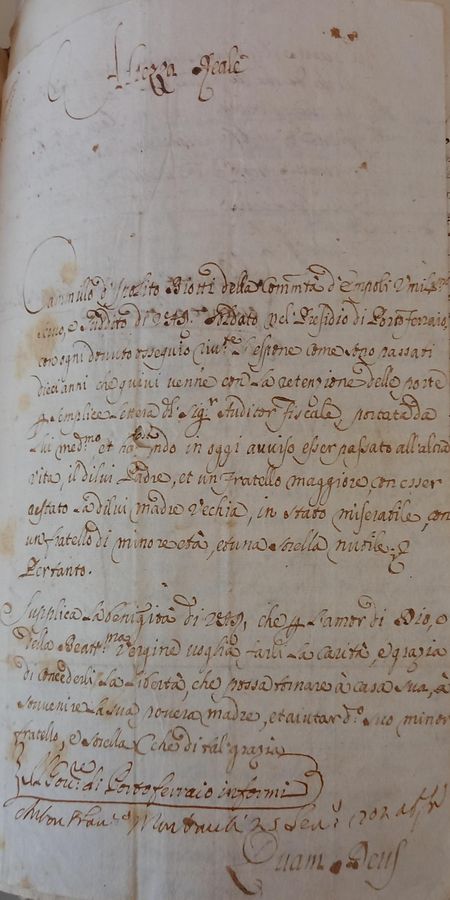 Altezza Reale
Cammillo d'Ipolito Biotti della Comm.tà d'Empoli Umiliss.
Servo, e Suddito di V.A.R. Soldato nel Presidio di Portoferraio,
con ogni dovuto ossequio espone come sono passati
dieci anni che quivi venne con La retenzione delle porte
p semplice Lettera del Sig.r Auditor Fiscale, portata da
Lui med.mo et in oggi avviso esser passato all'altra
vita, il di lui Padre, et un fratello maggiore con esser
restato La di lui madre Vechia, in stato miserabile, con
un fratello di minore età, et una Sorella nubile, e
Pertanto.
Supplica La benignità di V.A.R. che p L'amor di Dio, e
della Beat.ma Vergine voglia farli La Carità, e grazia
di Concederli La Libertà, che possa tornare à Casa Sua, à
sovenire La Sua povera madre, et aiutar d.o Suo minor
fratello, e Sorella Che di tal grazia
Il Gov.re di Portoferraio informi
25
Quam Deus